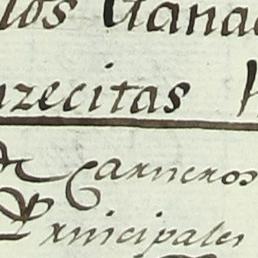 los Gana
zecitas
de Carneros
Principales